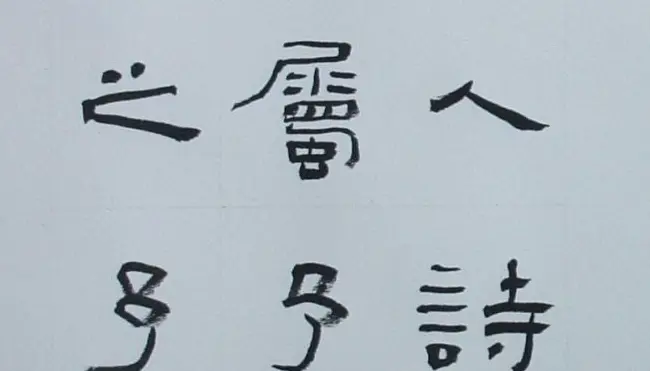 人詩
屬予
之予